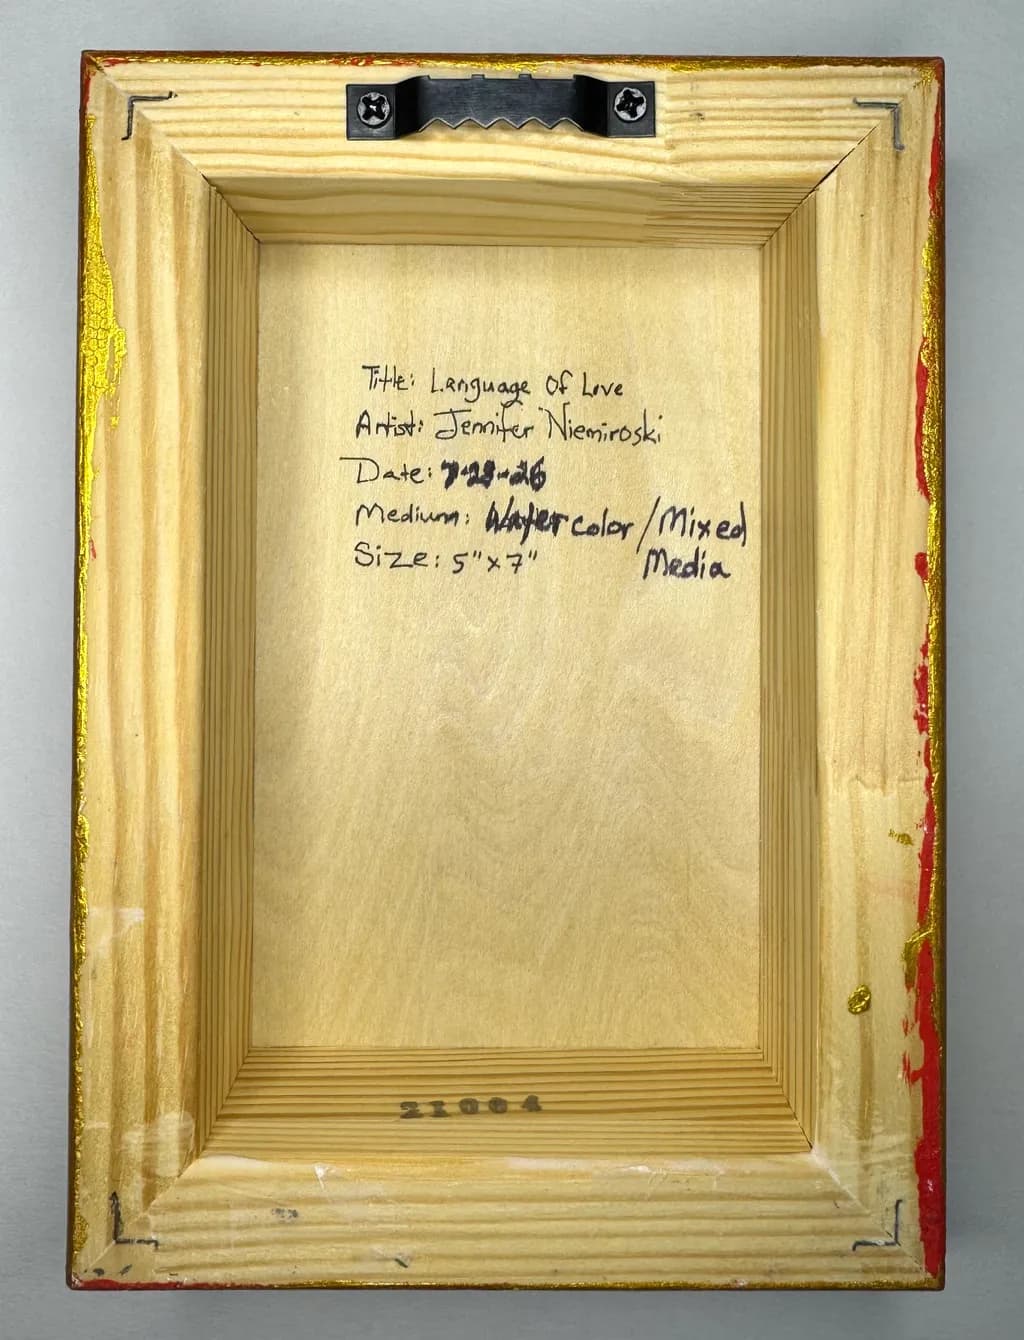 Title: Language Of Love
Artist: Jennifer Niemiroski
Date: 7-23-26
Medium: Watercolor/Mixed
Media
Size: 5"x7"
21004